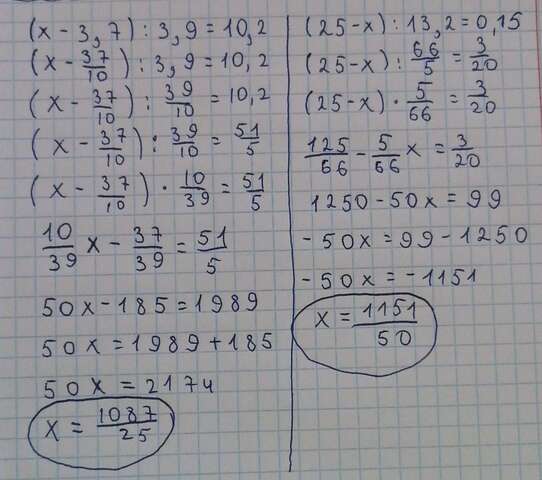 (x - 3,7) : 3,9 = 10,2
(x - 37/10) : 3,9 = 10,2
(x - 37/10) : 39/10 = 10,2
(x - 37/10) : 39/10 = 51/5
(x - 37/10) · 10/39 = 51/5
10/39 x - 37/39 = 51/5
50x - 185 = 1989
50x = 1989 + 185
50x = 2174
x = 1087/25
(25 - x) : 13,2 = 0,15
(25 - x) : 66/5 = 3/20
(25 - x) · 5/66 = 3/20
125/66 - 5/66 x = 3/20
1250 - 50x = 99
- 50x = 99 - 1250
- 50x = - 1151
x = 1151/50